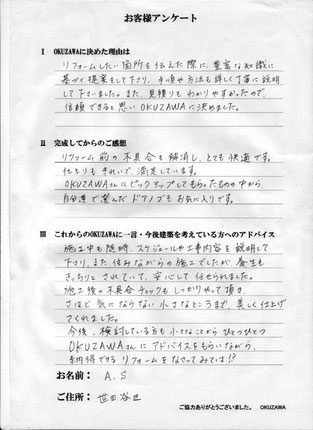 お客様アンケート
I OKUZAWAに決めた理由は
リフォームしたい箇所を伝えた際に、豊富な知識に
基づく提案をして下さり、手順や方法も詳しく丁寧に説明
して下さいました。また、見積りもわかりやすかったので、
信頼できると思いOKUZAWAに決めました。
II 完成してからのご感想
リフォーム前の不具合も解消し、とても快適です。
仕上りもきれいで満足しています。
OKUZAWAさんにピックアップしてもらったものの中から、
自分達で選んだドアノブもお気に入りです。
III これからのOKUZAWAに一言・今後建築を考えている方へのアドバイス
施工中も随時、スケジュールや工事内容を説明して
下さり、また住みながらの施工でしたが、養生も
きっちりとされていて、安心して任せられました。
施工後の不具合チェックもしっかりやって頂き
さほど気にならない小さなところまで、美しく仕上げ
てくれました。
今後、検討している方も小さなことからひとつひとつ
OKUZAWAさんにアドバイスをもらいながら、
納得できるリフォームをなさってみては!?
お名前: A.S.
ご住所: 世田谷区
ご協力ありがとうございました。 OKUZAWA